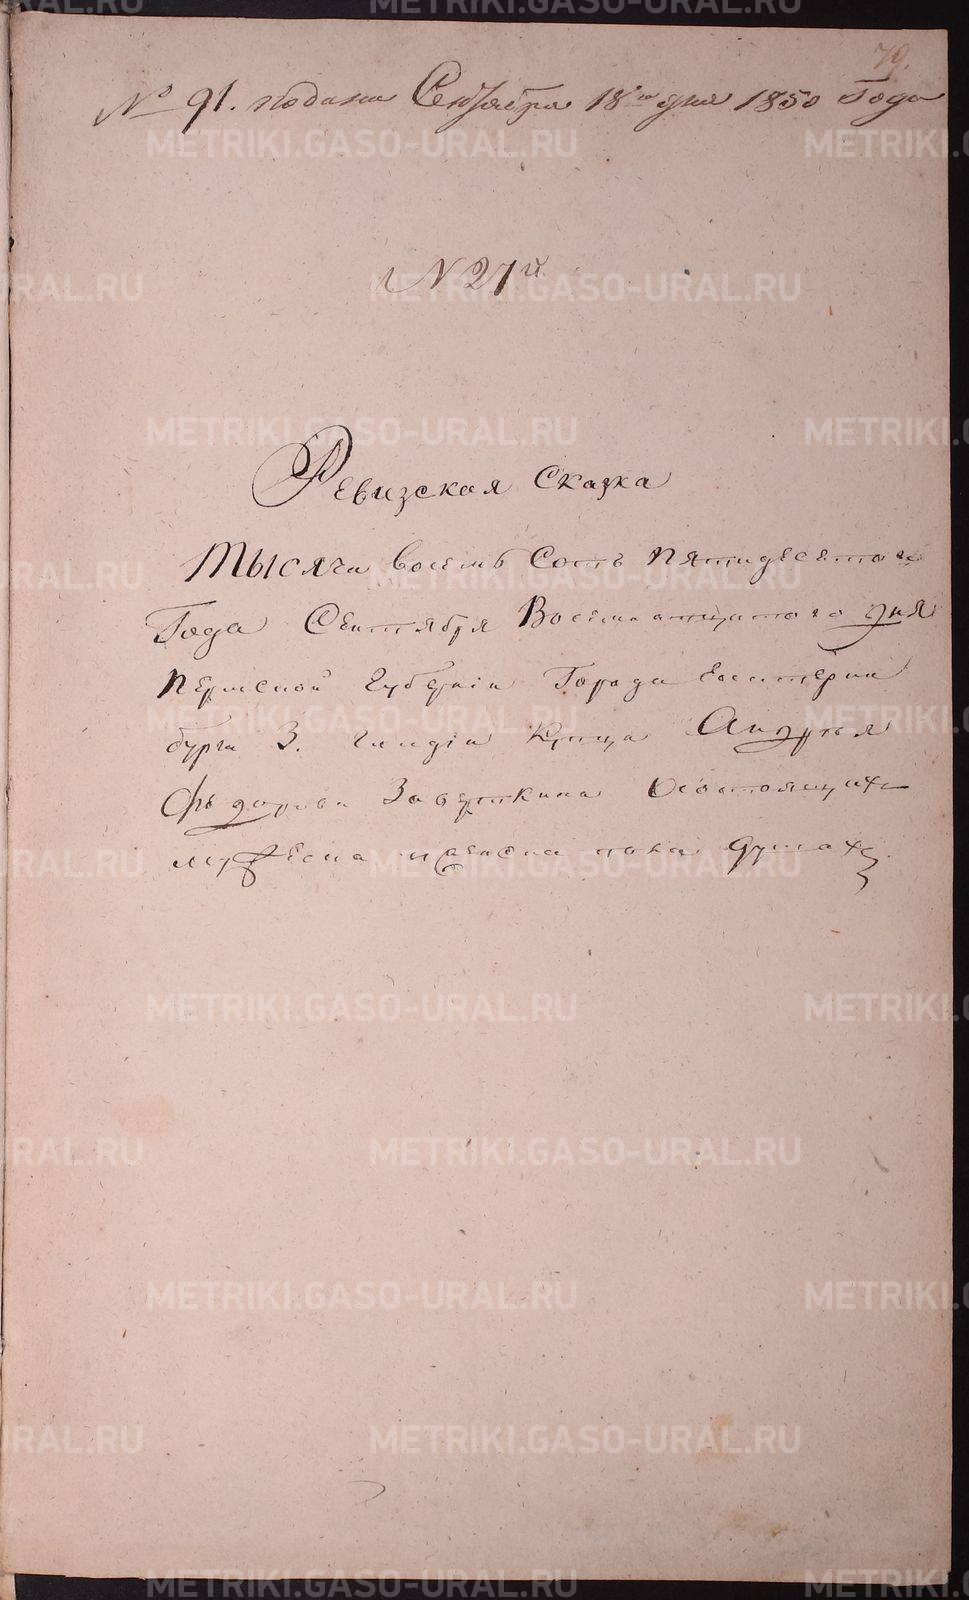 79.
№ 91. подана Сентября 18го дня 1850 Года
№ 27й
Ревизская Сказка
Тысяча восемь Сотъ Пятидесятого
Года Сентября Восемнатцатого дня
Пермской Губерніи Города Екатерин
бурга 3. Гилдіи Купца Андрея
Федорова Заверткина Осостоящихъ
мужеска иженска пола душахъ.
METRIKI.GASO-URAL.RU